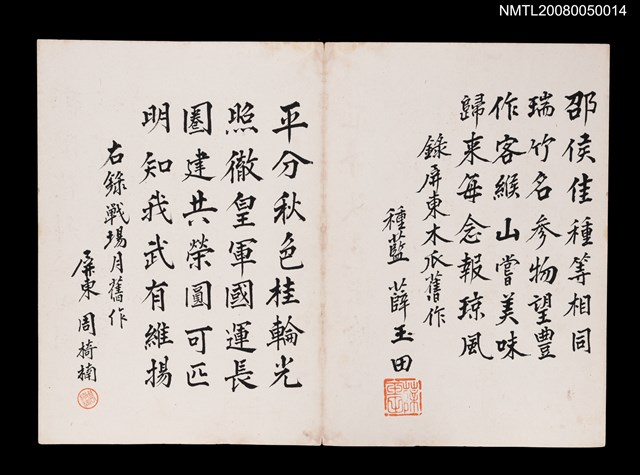 NMTL20080050014
邵侯佳種等相同
瑞竹名參物望豐
作客緱山嘗美味
歸来每念報瓊風
錄屏東木瓜舊作
種藍 薛玉田
平分秋色桂輪光
照徹皇軍國運長
圈建共榮圓可匹
明知我武有維揚
右錄戰場月舊作
屏東 周椅楠